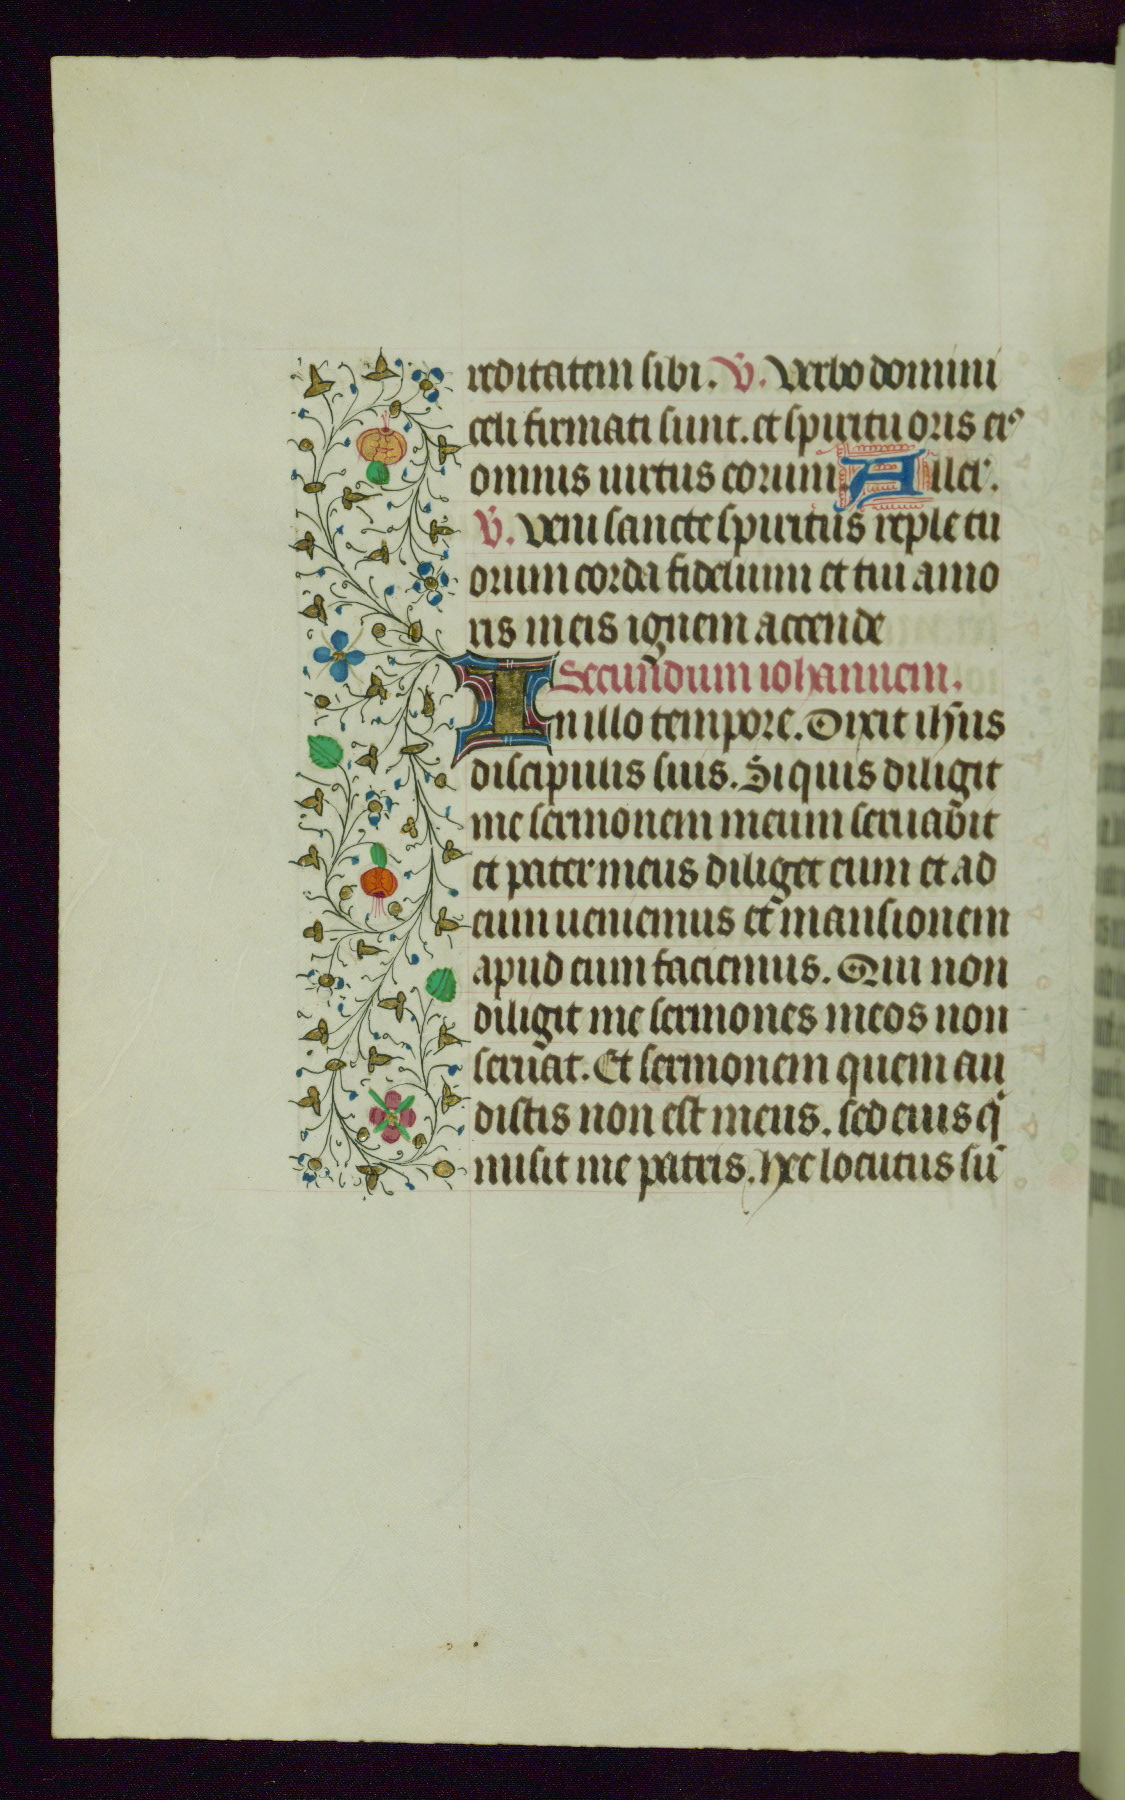 reditatem sibi. V̄. Verbo domini
celi firmati sunt. et spiritu oris eiꝰ
omnis uirtus eorum. Alla'.
V̄. Veni sancte spiritus reple tu
orum corda fidelium et tui amo
ris in eis ignem accende
Secundum iohannem.
In illo tempore. Dixit ih̄us
discipulis suis. Si quis diligit
me sermonem meum seruabit
et pater meus diliget eum et ad
eum ueniemus et mansionem
apud eum faciemus. Qui non
diligit me sermones meos non
seruat. Et sermonem quem au
distis non est meus. sed eius q̄
misit me patris. Hec locutus sū